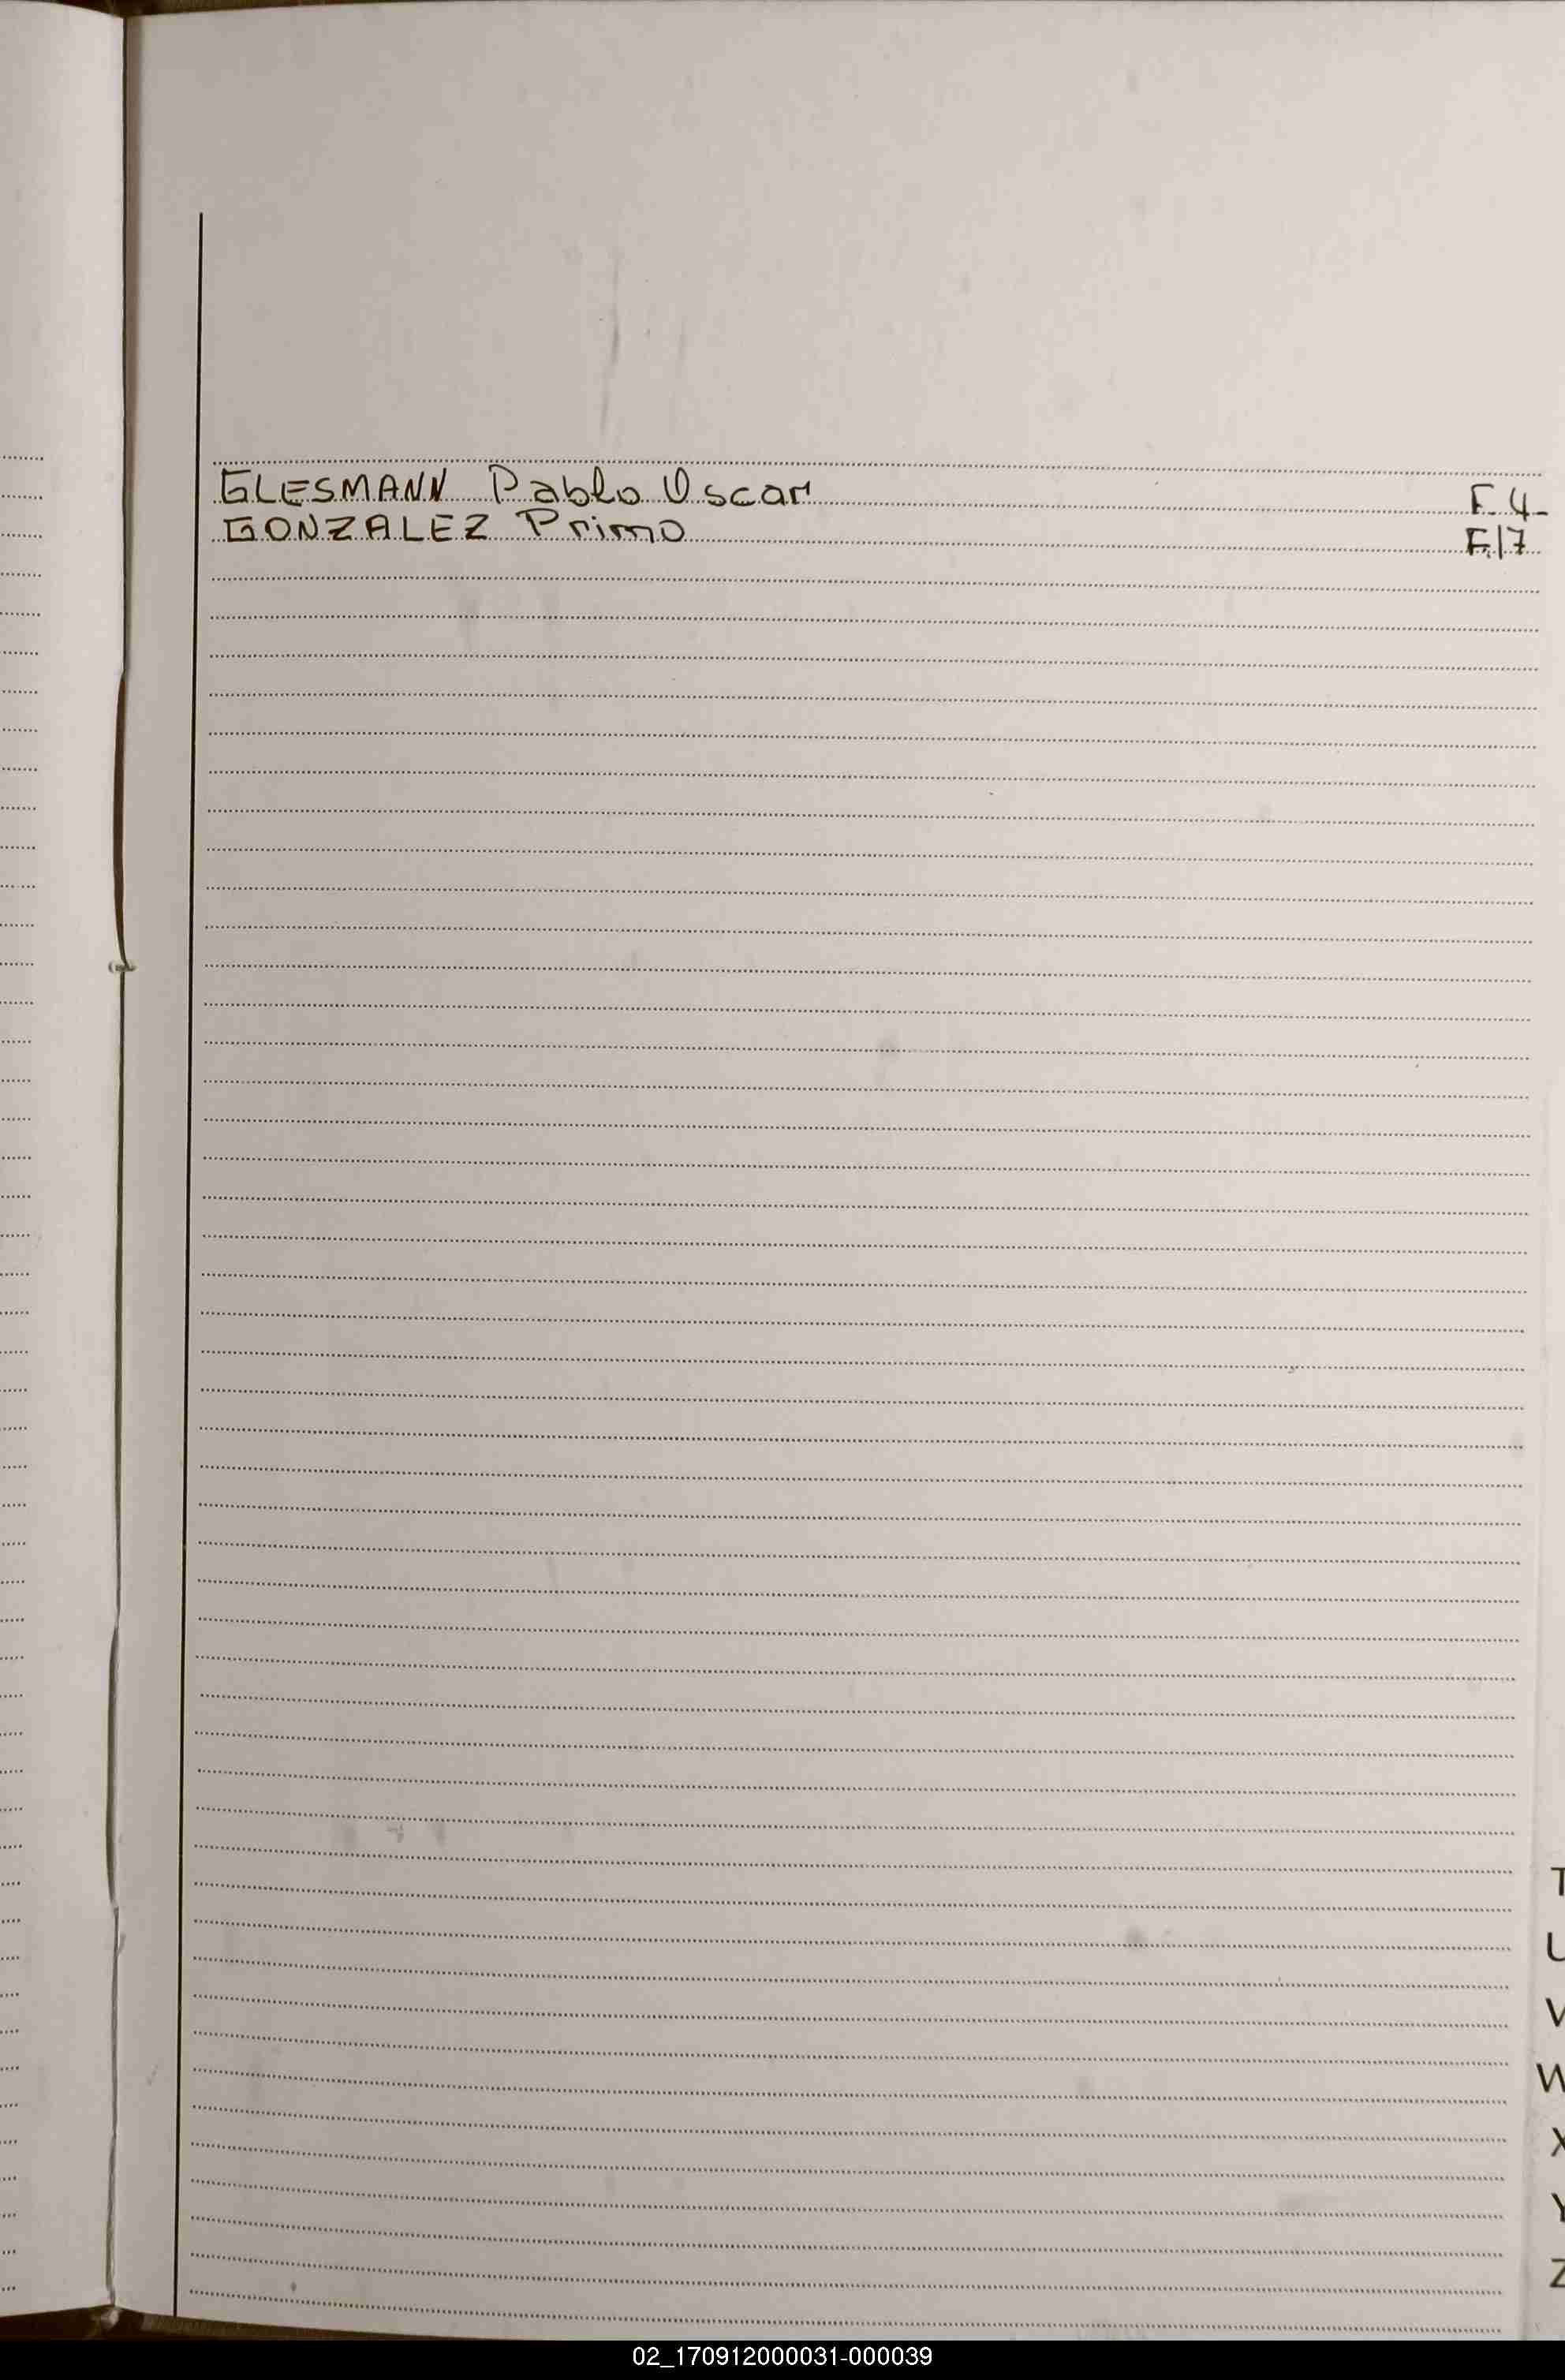 GLESMANN Pablo Oscar F. 4-
GONZALEZ Primo F.17
T
U
V
W
X
Y
Z
02_170912000031-000039